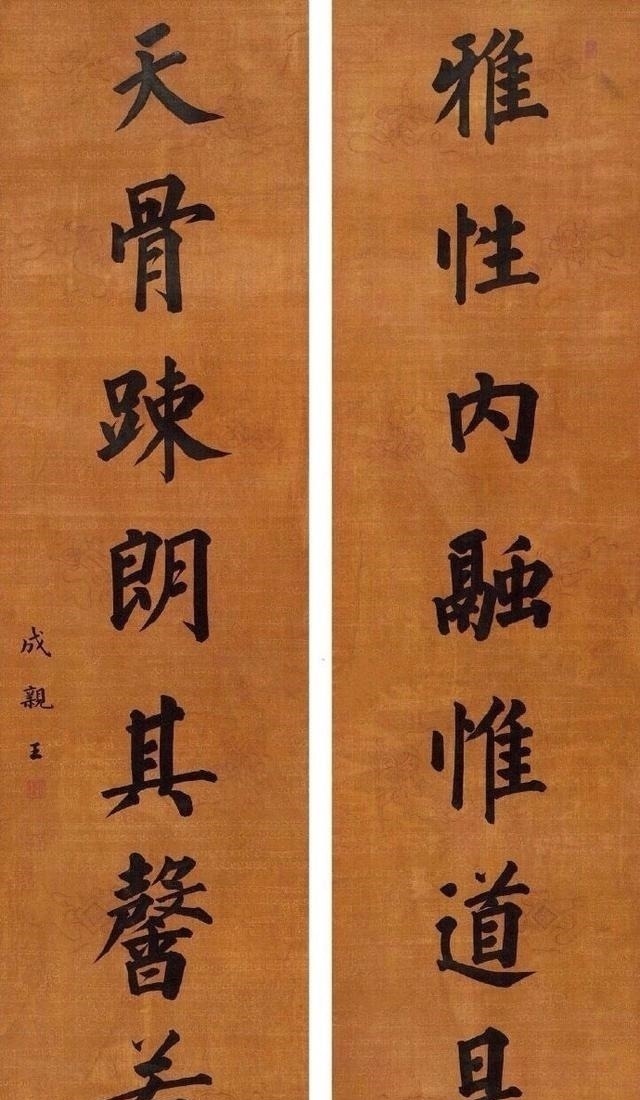 雅性内融惟道
天骨踈朗其馨
成親王